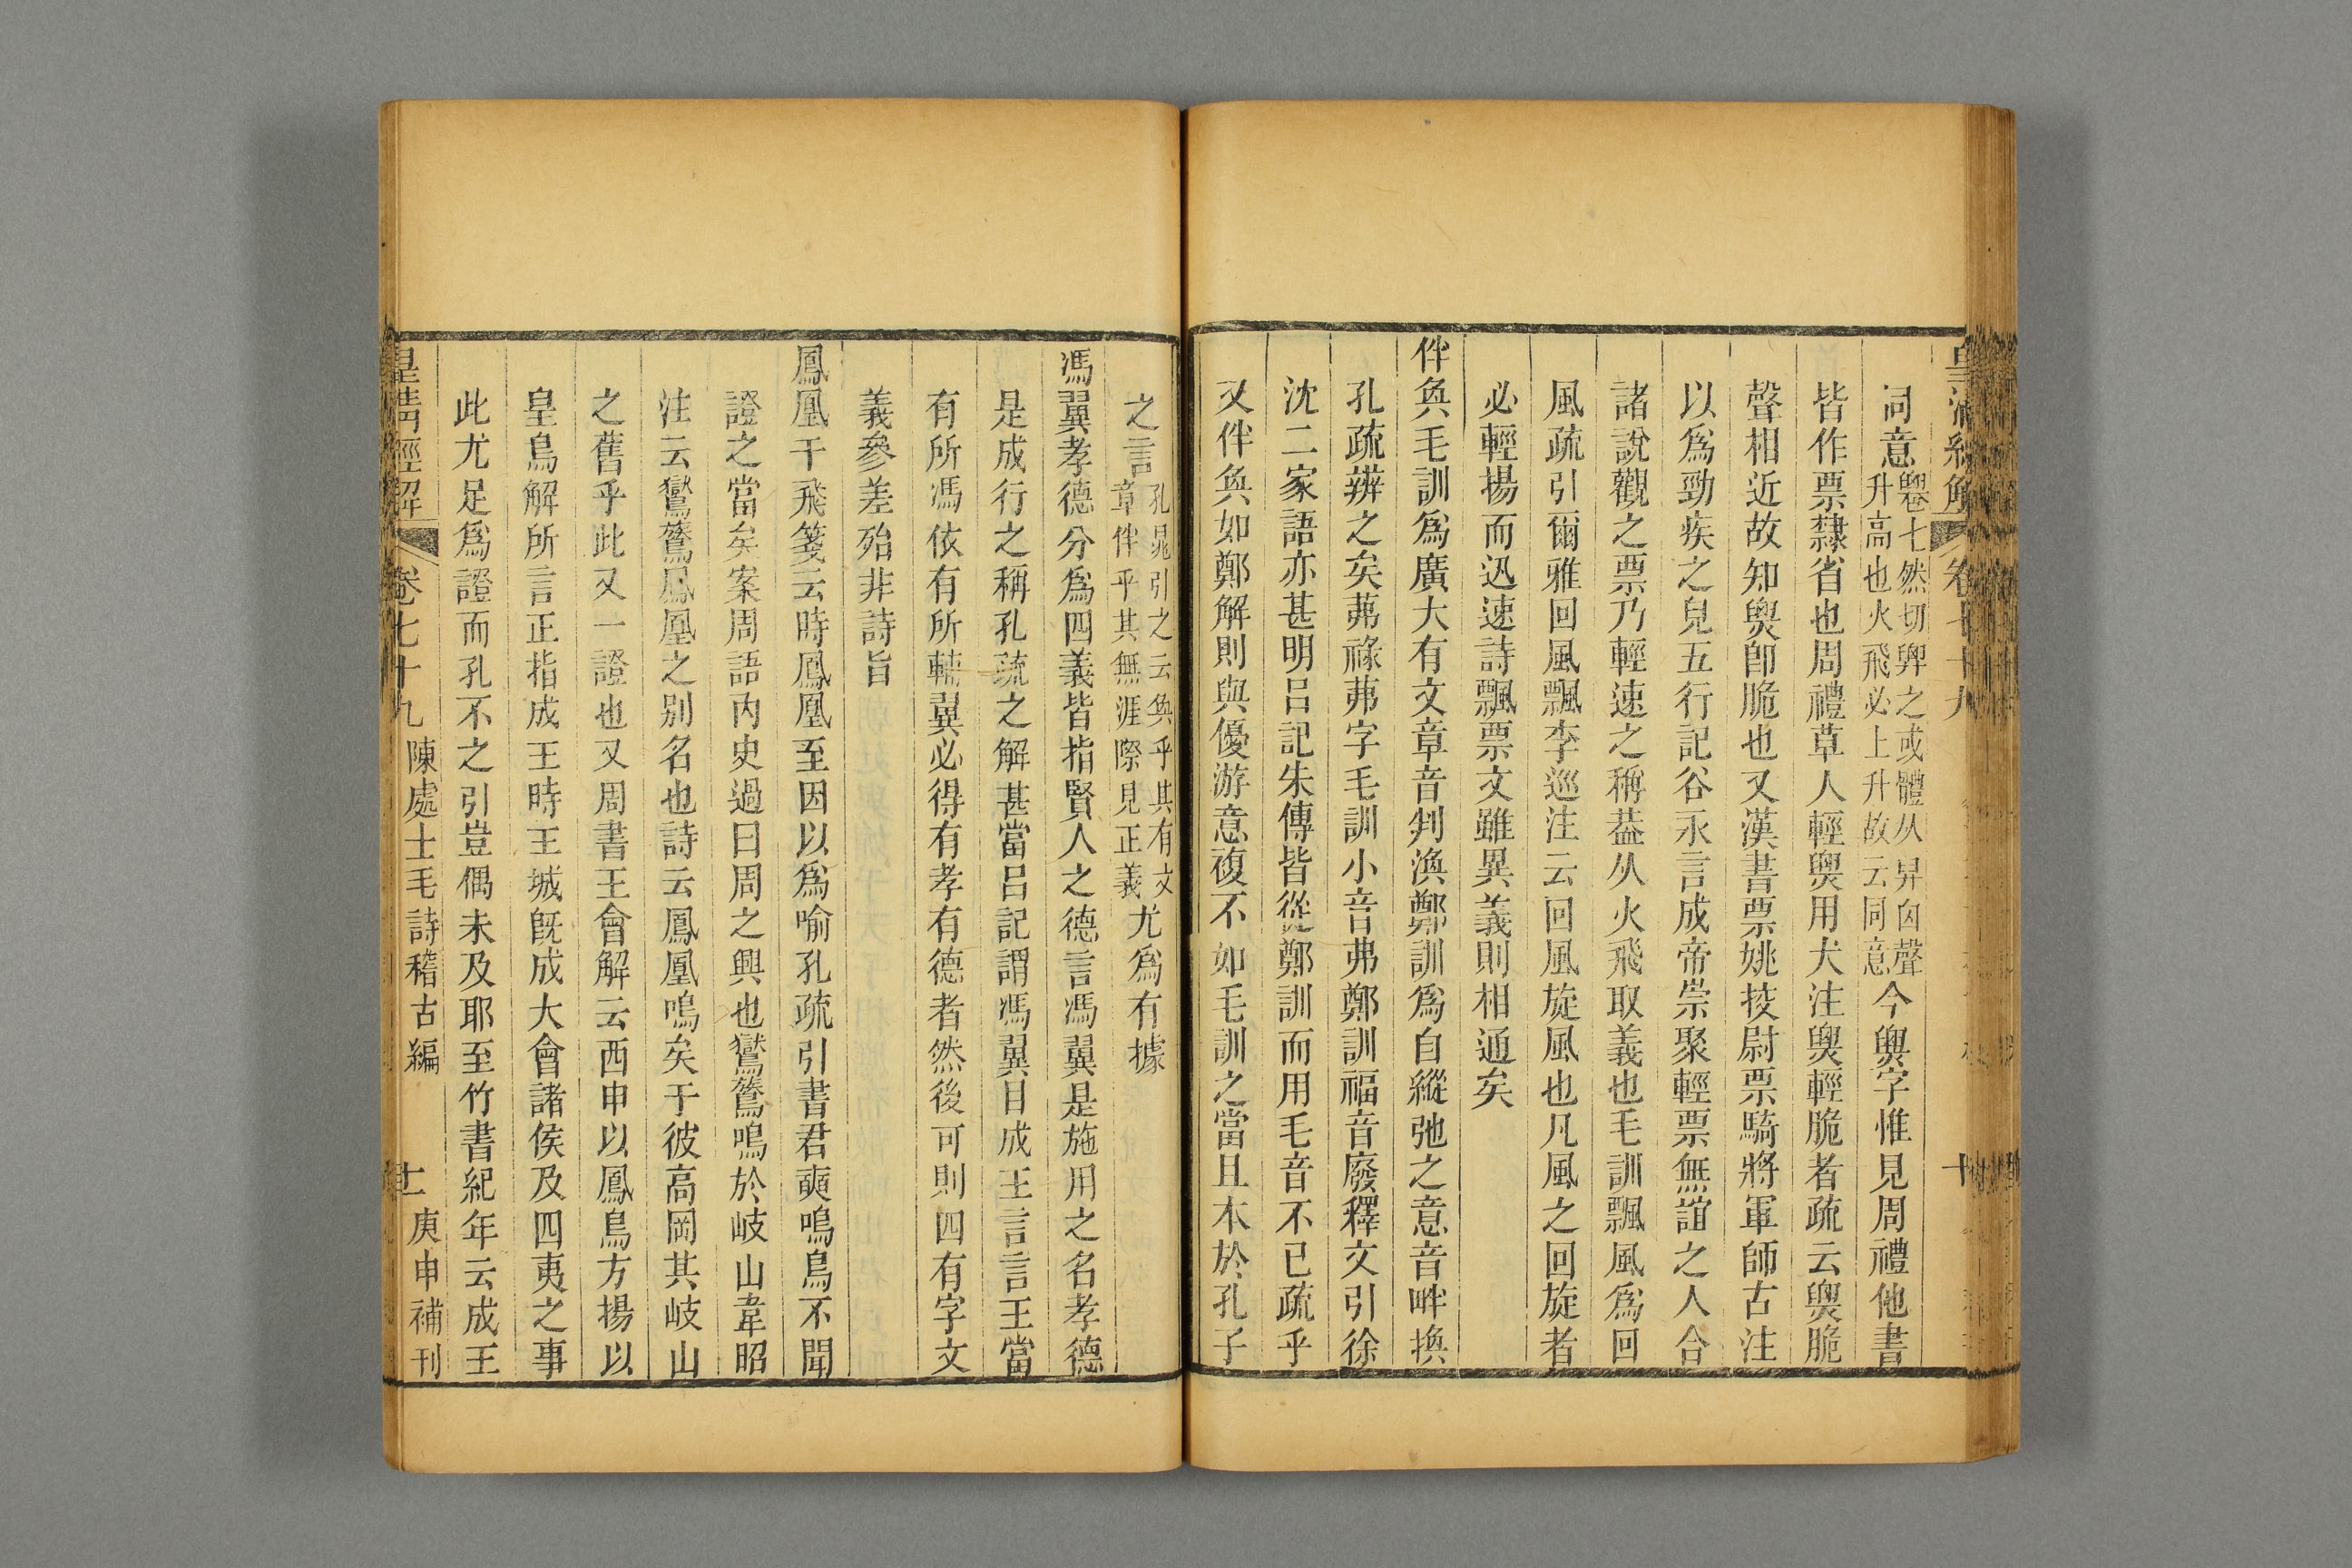 同意𤐫卷七然切䙴之或體从舁囟聲升高也火飛必上升故云同意今㷠字惟見周禮他書
皆作票隸省也周禮草人輕㷠用犬注㷠輕脆者疏云㷠脆
聲相近故知㷠卽脆也又漢書票姚挍尉票騎將軍師古注
以爲勁疾之皃五行記谷永言成帝崇聚輕票無誼之人合
諸說觀之票乃輕速之稱葢从火飛取義也毛訓飄風爲回
風疏引爾雅回風飄李巡注云回風旋風也凡風之回旋者
必輕揚而迅速詩飄票文雖異義則相通矣
伴奐毛訓爲廣大有文章音判渙鄭訓爲自縱弛之意音畔換
孔疏辨之矣茀祿茀字毛訓小音弗鄭訓福音廢釋文引徐
沈二家語亦甚明呂記朱傳皆從鄭訓而用毛音不已疏乎
又伴奐如鄭解則與優游意複不如毛訓之當且本於孔子
之言孔晁引之云奐乎其有文章伴乎其無涯際見正義尤爲有據
馮翼孝德分爲四義皆指賢人之德言馮翼是施用之名孝德
是成行之稱孔疏之解甚當呂記謂馮翼目成王言言王當
有所馮依有所輔翼必得有孝有德者然後可則四有字文
義參差殆非詩旨
鳳凰于飛箋云時鳳凰至因以爲喻孔疏引書君奭鳴鳥不聞
證之當矣案周語內史過曰周之興也鸑鷟鳴於岐山韋昭
注云鸑鷟鳳凰之别名也詩云鳳凰鳴矣于彼高岡其岐山
之舊乎此又一證也又周書王會解云西申以鳳鳥方揚以
皇鳥解所言正指成王時王城旣成大會諸侯及四夷之事
此尤足爲證而孔不之引豈偶未及耶至竹書紀年云成王
皇清經解 卷七十九 陳處士毛詩稽古編 十一 庚申補刊